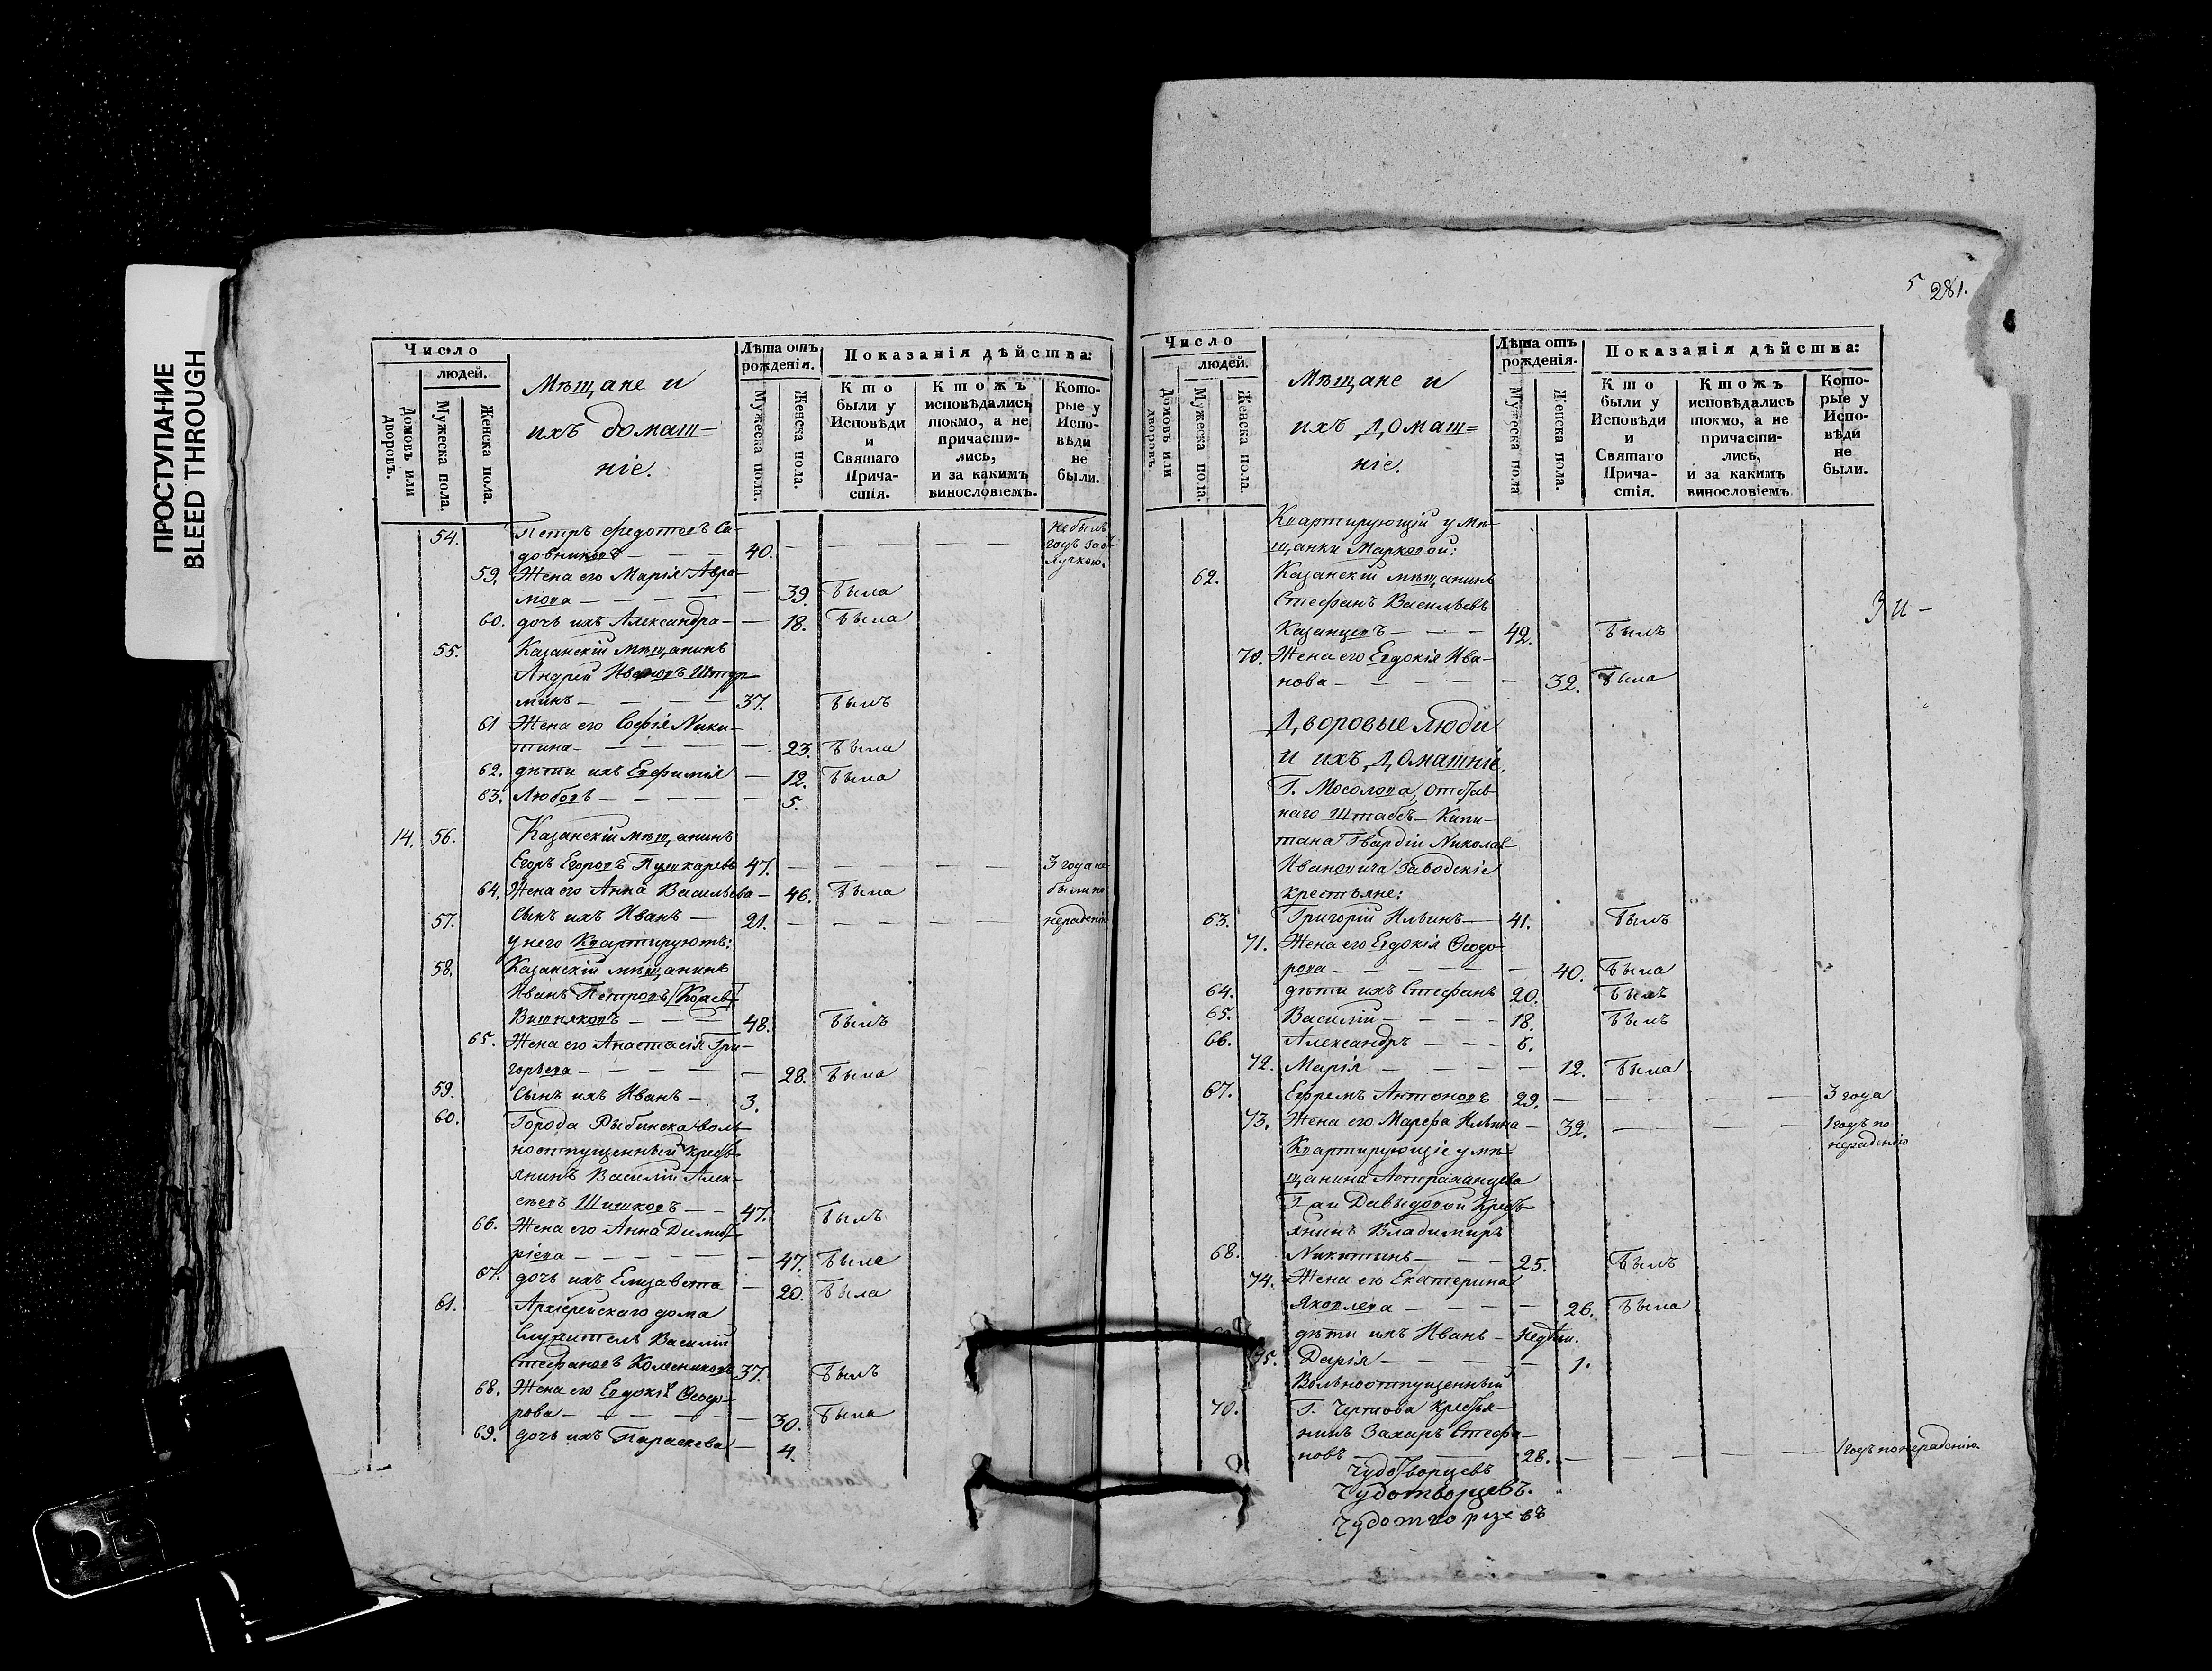 ПРОСТУПАНИЕ
BLEED THROUGH
Число
людей.
Домовъ или дворовъ.
Мужеска пола.
Женска пола.
Мѣщане и
ихъ домаш-
ніе.
Лѣта отъ рожденія.
Мужеска пола.
Женска пола.
Показанія дѣйства:
Кто были у Исповѣди и Святаго Прича-стія.
Ктожъ исповѣдались токмо, а не причасти-лись, и за какимъ винословіемъ.
Кото-рые у Испо-вѣди не были.
54. Петръ Федотовъ Са- не былъ
довниковъ — — — 40. — — — — годъ за от
лучкою.
59. Жена его Марія Авра-
мова — — — — — 39. была
60. дочь ихъ Александра — — 18. была
55. Казанскій мѣщанинъ
Андрей Ивановъ Штур-
минъ — — — — 37. былъ
61 Жена его Софія Ники-
тина — — — — — 23. была
62. дѣти ихъ Евфимія — 12. была
63. Любовь — — — — — 5.
14. 56. Казанскій мѣщанинъ
Егоръ Егоровъ Пушкаревъ 47. — — — — 3 года не
64. Жена его Анна Васильева — 46. была были по
57. Сынъ ихъ Иванъ — 21. — — — — нерадѣнію
у него Квартируютъ:
58. Казанскій мѣщанинъ
Иванъ Петровъ
Вишняковъ — — — 48. былъ
65. Жена его Анастасія Гри-
горьева — — — — — 28. была
59. Сынъ ихъ Иванъ — 3.
60. Города Рыбинска воль-
ноотпущенный крестъ-
янинъ Василій Алек-
сѣевъ Шишковъ — — 47. былъ
66. Жена его Анна Димит-
ріева — — — — — 47. была
67. дочь ихъ Елизавета — 20. была
61. Архіерейскаго дома
Служитель Василій
Стефановъ Колесниковъ 37. былъ
68. Жена его Евдокія Ѳеодо-
рова — — — — — 30. была
69. дочь ихъ Параскева — 4.
5 281.
Число
людей.
Домовъ или дворовъ.
Мужеска пола.
Женска пола.
Мѣщане и
ихъ домаш=
ніе.
Лѣта отъ рожденія.
Мужеска пола
Женска пола.
Показанія дѣйства:
Кто были у Исповѣди и Святаго Прича-стія.
Ктожъ исповѣдались токмо, а не причасти-лись, и за какимъ винословіемъ
Кото-рые у Испо-вѣди не были.
Квартирующій у Мѣ-
щанки Марковой:
62. Казанскій мѣщанинъ
Стефанъ Васильевъ
Казанцевъ — — — 42. былъ
70. Жена его Евдокія Ива-
нова — — — — — 32. была
Дворовые люди
и ихъ домашніе.
Г. Мосолова, отстав-
наго Штабсъ-Капи-
тана Гвардіи Николая
Ивановича Заводскіе
крестьяне:
63. Григорій Ильинъ — 41. былъ
71. Жена его Евдокія Ѳеодо-
рова — — — — — 40. была
64. дѣти ихъ Стефанъ 20. былъ
65. Василій — — — — 18. былъ
66. Александръ — — —
72. Марія — — — — — 12. была
67. Ефремъ Антоновъ 29. — — — — 3 года
73. Жена его Марѳа Ильина — 32. — — — 1 годъ по
нерадѣнію
Квартирующіе у мѣ-
щанина Астраханцева
Г-жи Давыдовой Крестъ-
янинъ Владимиръ
68. Никитинъ — — — 25. былъ
74. Жена его Екатерина
Яковлева — — — — 26. была
дѣти ихъ Иванъ — недѣли.
75. Дарія — — — — — 1.
Вольноотпущенный
70. Г. Чертова крестья-
нинъ Захаръ Стефа-
новъ — — — — 28. — — — — 1 годъ по нерадѣнію.
Чудотворцевъ
Чудотворцевъ.
Чудотворцевъ